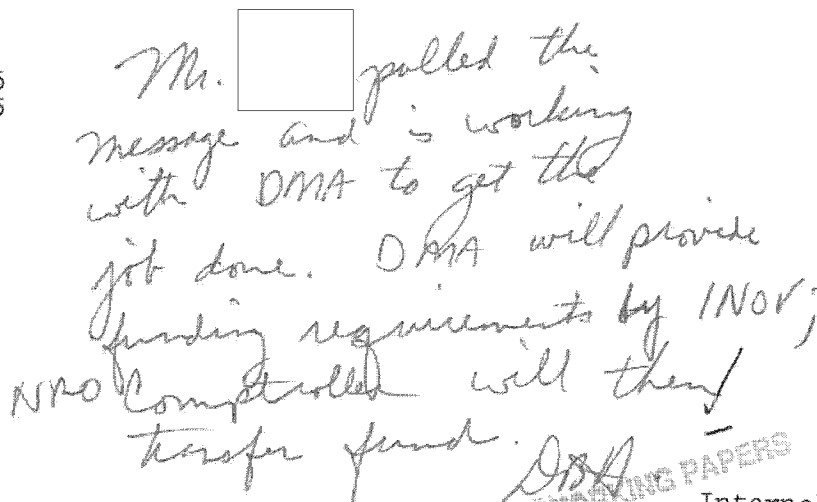 Mr. pulled the
message and is working
with DMA to get the
job done. DMA will provide
funding requirements by 1NOV;
NRO Comptroller will then
transfer fund.
PAPERS